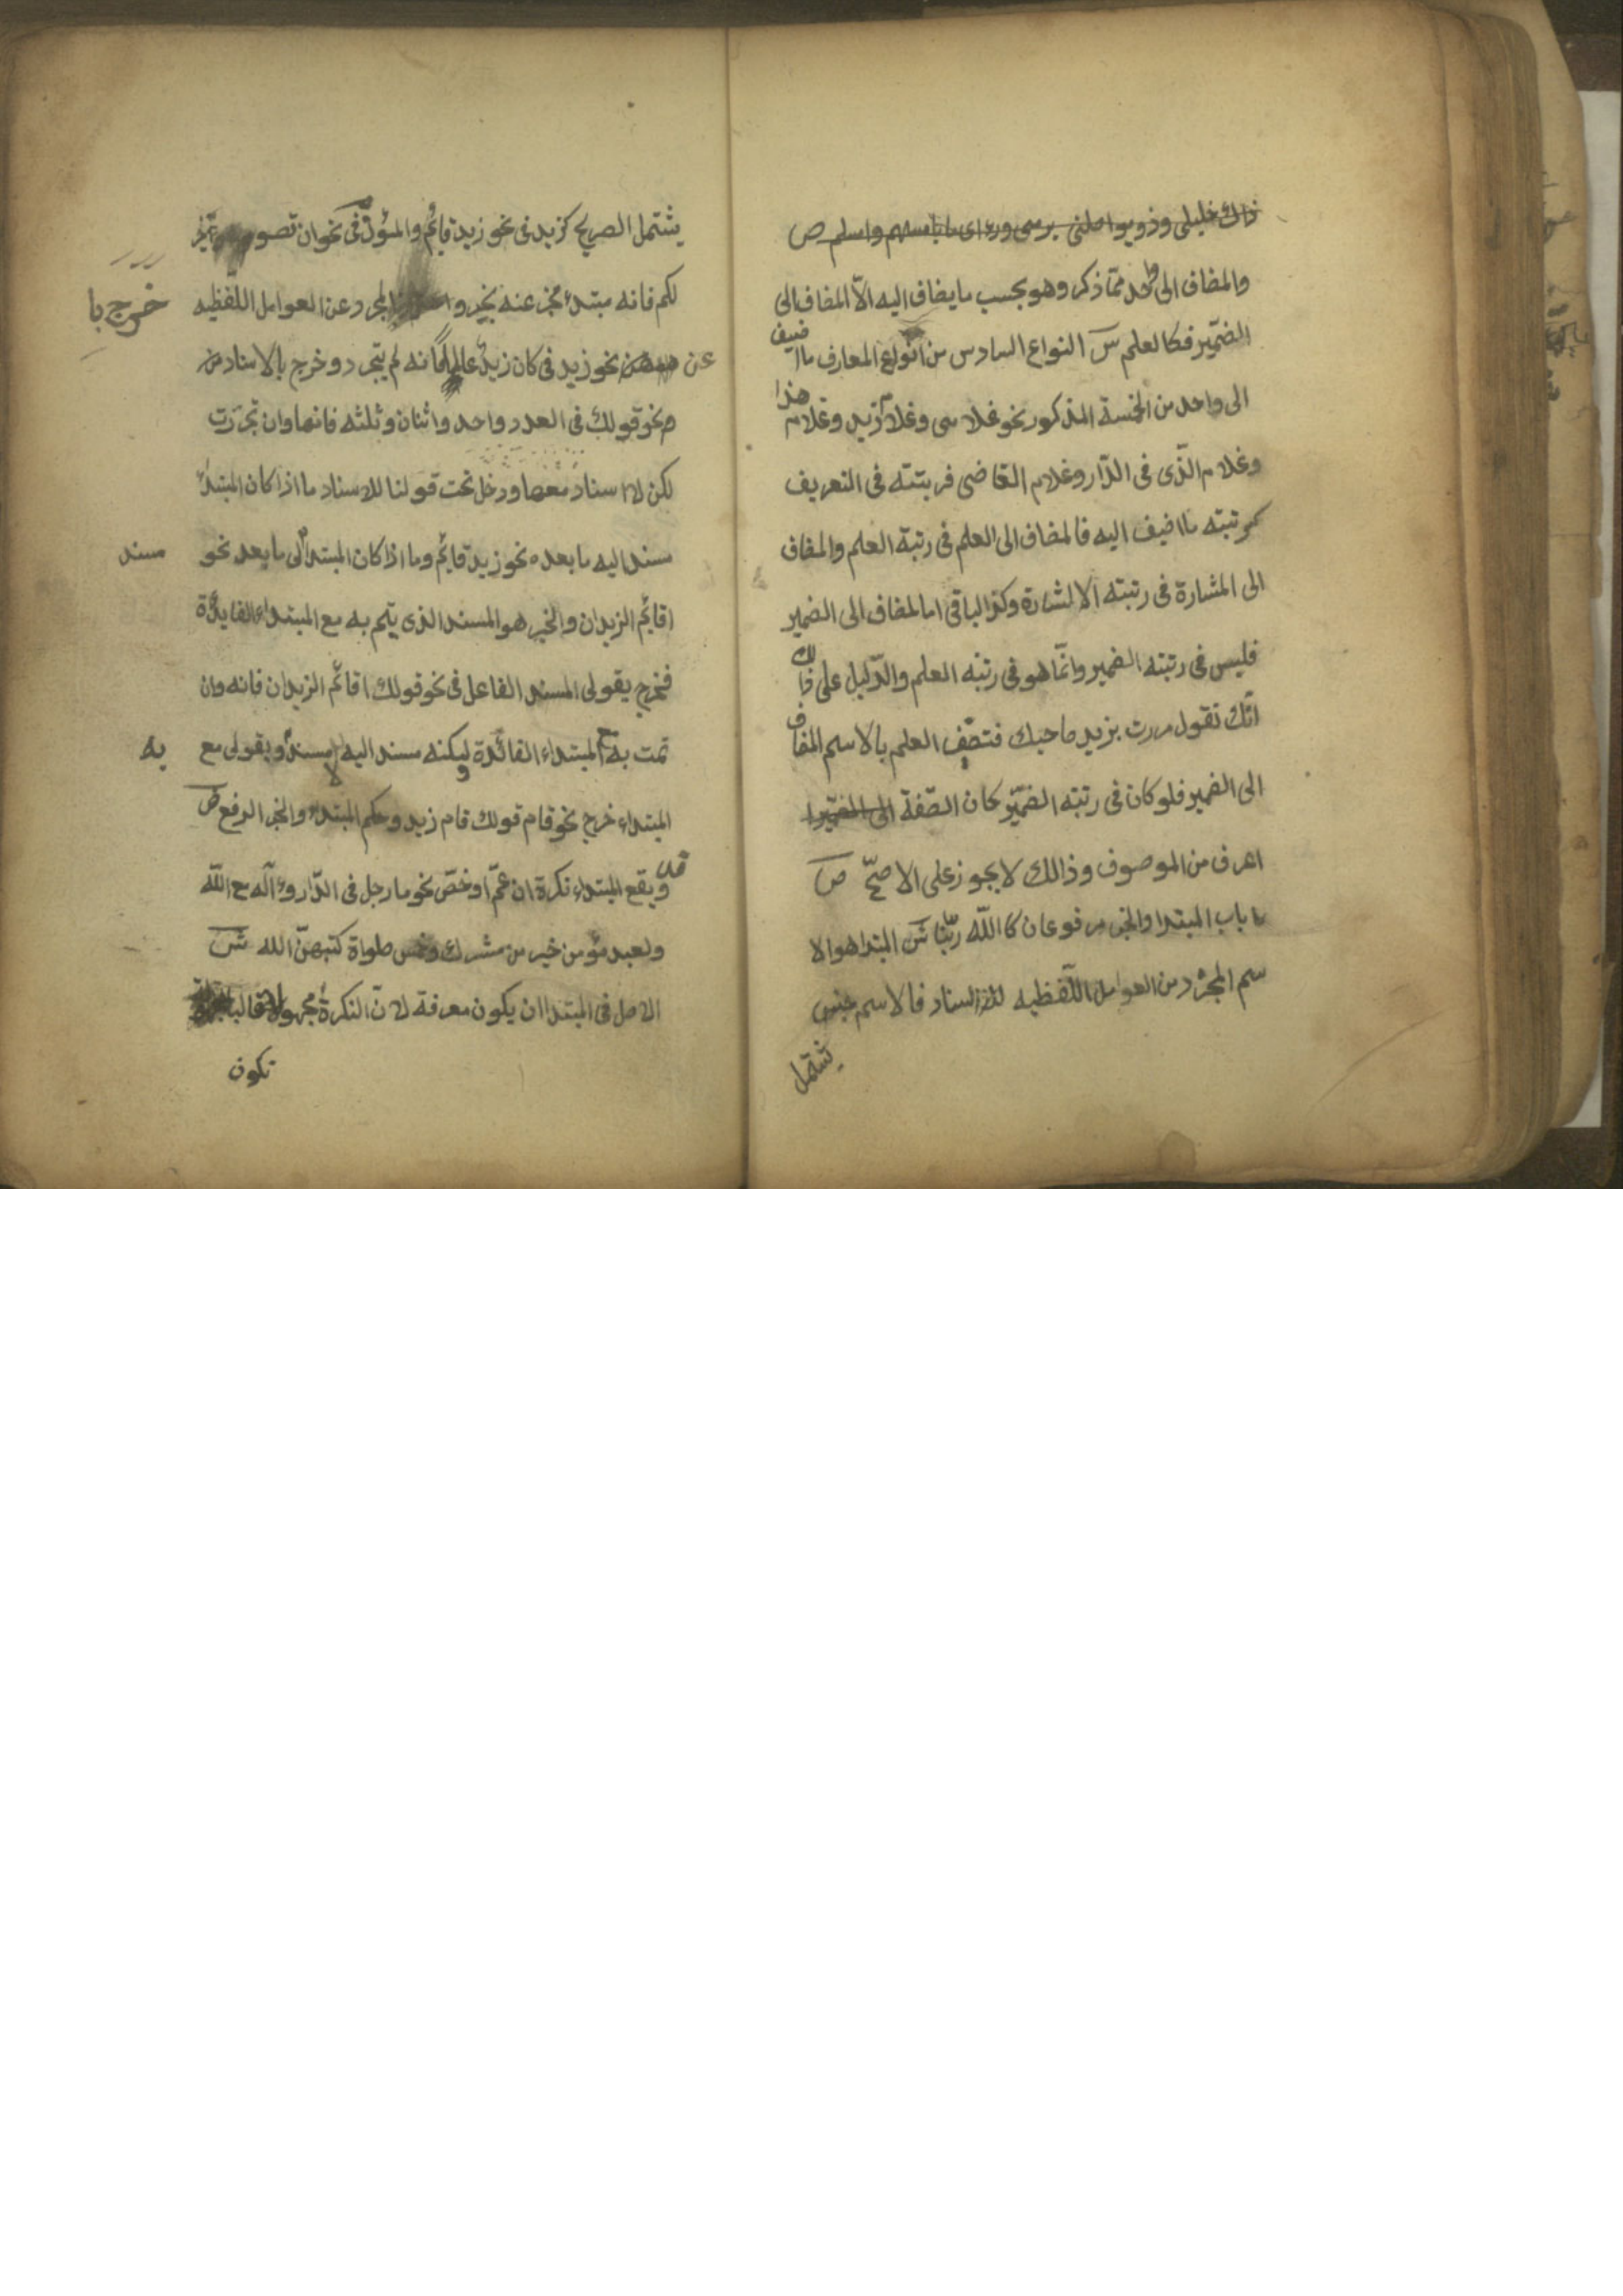 ذاك خليلي وذو يواصلني يرمي ورءاي بامسهم وامسلم ص
والمضاف الى واحد ممّا ذكر وهو بحسب ما يضاف اليه الّا المضاف الى
الضمّير فكالعلم س النواع السادس من انواع المعارف ما اضيف
الى واحد من الخمسة المذكور نحو غلامى وغلام زيد وغلام هذا
وغلام الّذى فى الدّار وغلام القاضى فربتته فى التعريف
كمرتبته ما اضيف اليه فالمضاف الى العلم فى رتبة العلم والمضاف
الى المشارة فى رتبته الالشارة وكذا الباقى اما لمضاف الى الضمير
فليس فى رتبته الضمير وانّما هو فى رتبه العلم والدّليل على ذالك
انّك تقول مررت بزيد صاحبك فتصف العلم بالاسم المضاف
الى الضمير فلو كان فى رتبته الضمّير كان الصّفة الى الضمّير ا
اعرف من الموصوف وذالك لا يجوز على الاصحّ ص
باب المبتدا والخبر مرفوعان كاللّه ربّنا ش المبتدا هو الا
سم المجرّد من العوامل اللّفظيه للاسناد فالاسم جنس
يشتمل
يشتمل الصريح كزيد فى نحو زيد قايم والمؤول فى نحو ان تصوموا خير
لكم فانه مبتدء مخبر عنه بخير و المجرد عن العوامل اللّفظيه
خرج با
عن نحو زيد فى كان زيد عالما فانه لم يتجرد وخرج بالاسناد من
نحو قولك فى العدد واحد واثنان وثلثه فانها وان تجرّدت
لكن لا اسناد معها ودخل تحت قولنا للاسناد ما اذا كان المبتدأ
مسند اليه ما بعده نحو زيد قايم وما اذا كان المبتدأ الى ما بعد نحو
مسند
اقايم الزيدان والخبر هو المسند الذى يتم به مع المبتداء الفايدة
فخرج بقولى المسند الفاعل فى نحو قولك اقائم الزيدان فانه وان
تمت به مع المبتداء الفائدة ولكنه مسند اليه لا مسند وبقولى مع
به
المبتداء خرج نحو قام قولك قام زيد وحكم المبتداء والخبر الرفع ص
وقد يقع المبتداء نكرة ان عمّ او خصّ نحو ما رجل فى الدّار وءاله مع اللّه
ولعبد مؤمن خير من مشرك وخمس صلواة كتبهنّ الله ش
الاصل فى المبتدا ان يكون معرفة لانّ النكرة مجهولة غالبا
تكون